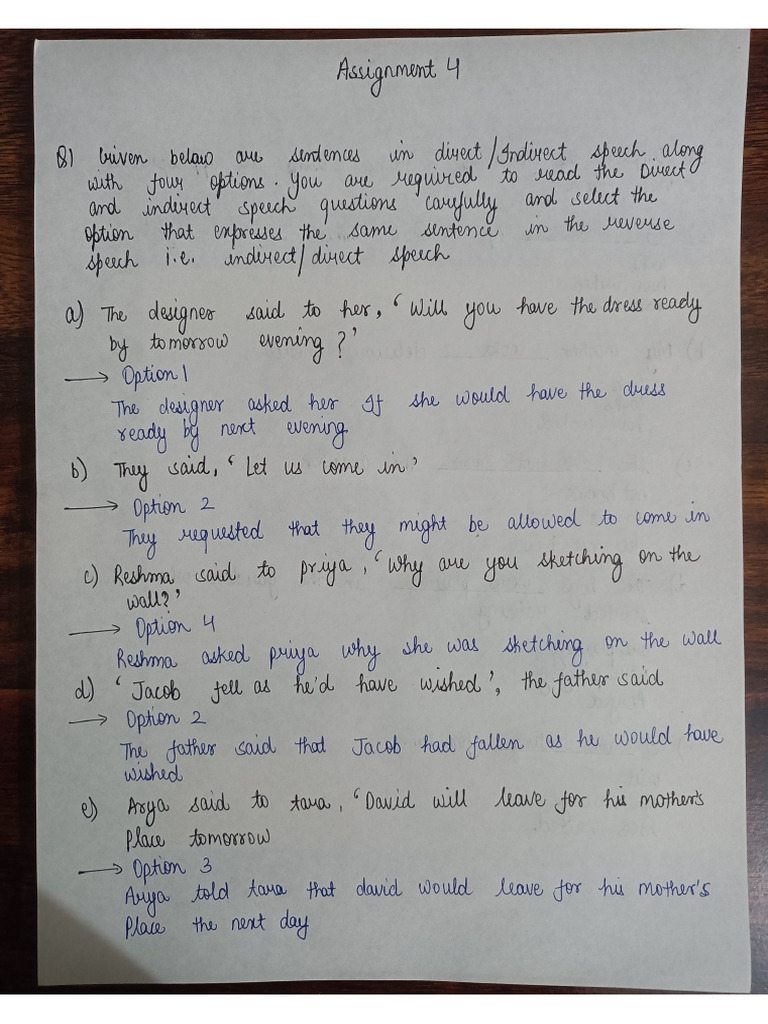 Assignment 4
Q1 Given below are sentences in direct/Indirect speech along
with four options. You are required to read the Direct
and indirect speech questions carefully and select the
option that expresses the same sentence in the reverse
speech i.e. indirect/direct speech
a) The designer said to her, ‘Will you have the dress ready
by tomorrow evening?’
→ Option 1
The designer asked her If she would have the dress
ready by next evening
b) They said, ‘Let us come in’
→ Option 2
They requested that they might be allowed to come in
c) Reshma said to priya, ‘Why are you sketching on the
wall?’
→ Option 4
Reshma asked priya why she was sketching on the wall
d) ‘Jacob fell as he'd have wished’, the father said
→ Option 2
The father said that Jacob had fallen as he would have
wished
e) Arya said to tara, ‘David will leave for his mother's
Place tomorrow
→ Option 3
Arya told tara that david would leave for his mother's
Place the next day